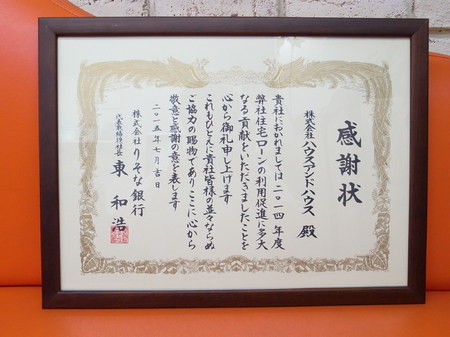 感謝状
株式会社 ハウスアンドハウス 殿
貴社におかれましては二〇一四年度
弊社住宅ローンの利用促進に多大
なる貢献をいただきましたことを
心から御礼申し上げます
これもひとえに貴社皆様の並々ならぬ
ご協力の賜物でありここに心から
敬意と感謝の意を表します
二〇一五年七月吉日
株式会社りそな銀行
代表取締役社長 東 和浩